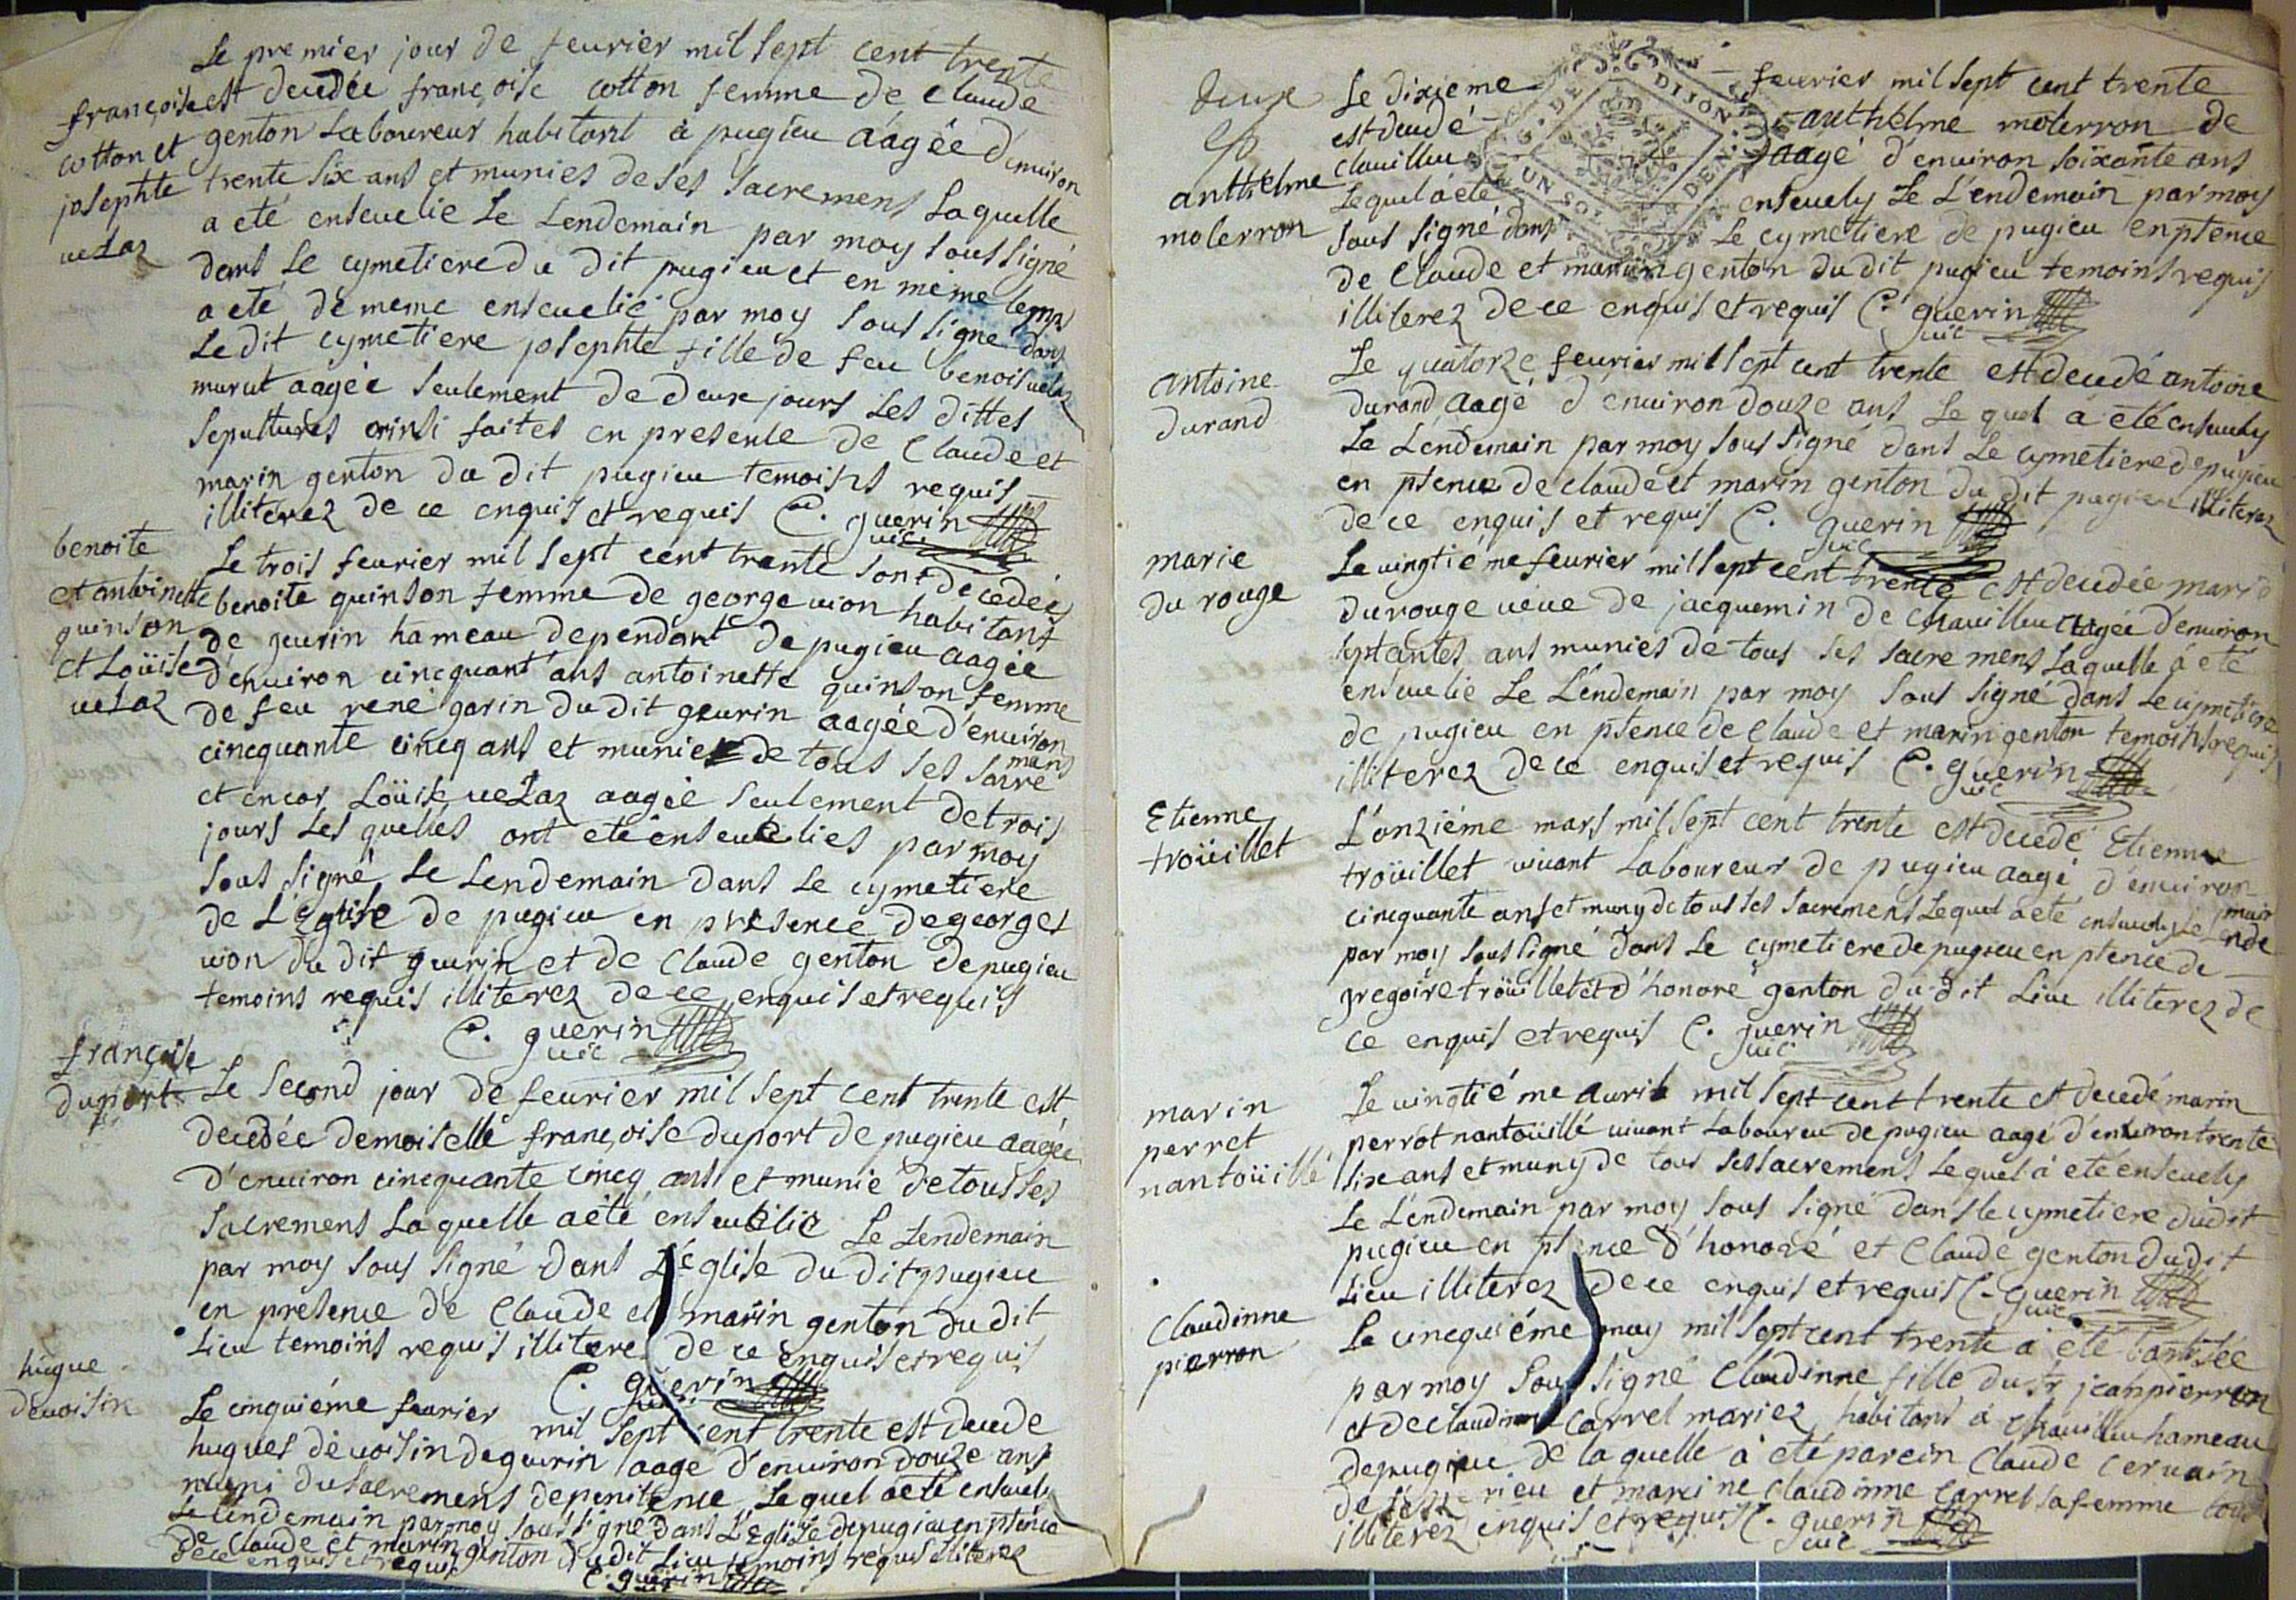 Le premier jour de feurier mil sept cent trente
françoise
cotton et
josephte
uelaz
est decedée françoise cotton femme de Claude
genton Laboureur habitant a pugieu aagée d'enuiron
trente six ans et munies de ses sacremens Laquelle
a eté enseuelie Le Lendemain par moy soussigné
dans Le cymetiere du dit pugieu et en même temps
a eté de meme enseuelie par moy sous signé dans
Le dit cymetiere josephte fille de feu benois uelaz
murut aagée seulement de deux jours Les dittes
sepultures ainsi faites en presence de Claude et
marin genton du dit pugieu temoins requis
illiterez de ce enquis et requis C. guerin
uic
benoite
et antoinette
quinson
et Loüise
uelaz
Le trois feurier mil sept cent trente sont decedées
benoite quinson femme de george uion habitans
de geurin hameau dependant de pugieu aagée
d'enuiron cincquant ans antoinette quinson femme
de feu rené garin du dit geurin aagée d'enuiron
cincquante cincq ans et munies de tous ses sacre
mens
et encor Loüise uelaz aagée seulement de trois
jours Les quelles ont eté enseuelies par moy
sous signé Le Lendemain dans Le cymetiere
de L'Eglise de pugieu en presence de georges
uion du dit geurin et de Claude genton de pugieu
temoins requis illiterez de ce enquis et requis
C. guerin
uic
françoise
duport
Le second jour de feurier mil sept cent trente est
decedée demoiselle françoise duport de pugieu aagée
d'enuiron cincquante cincq ans et munie de tous ses
sacremens Laquelle a eté enseuelie Le Lendemain
par moy sous signé dans L'eglise du dit pugieu
en presence de Claude et marin genton du dit
Lieu temoins requis illitere de ce enquis et requis
C. guerin
hugue
deuoisin
Le cinquiéme feurier mil sept cent trente est decede
hugues deuoisin de geurin aage d'enuiron douze ans
muni du sacremens de penitence Le quel a eté enseuely
Le Lendemain par moy sous signé dans L'Eglise de pugieu en ptence
de Claude et marin genton du dit Lieu temoins requis illiterez
de ce enquis et requis
C. guerin
deux
anthelme
molerron
G. DE DIJON
UN SO
DEN
Le dixieme feurier mil sept cent trente
est decedé anthelme molerron de
Clauillieu aagé d'enuiron soixante ans
Lequel a eté enseuely Le Lendemain par moy
sous signé dans Le cymetiere de pugieu en ptence
de Claude et marin genton du dit pugieu temoins requis
illiterez de ce enquis et requis C. guerin
uic
antoine
durand
Le quatorze feurier mil sept cent trente est decedé antoine
durand aagé d'enuiron douze ans Le quel a eté enseuely
Le Lendemain par moy sous signé dans Le cymetiere de pugieu
en ptence de claude et marin genton du dit pugieu illiterez
de ce enquis et requis C. guerin
uic
marie
du rouge
Le uingtiéme feurier mil sept cent trente est decedée marie
du rouge ueue de jacquemin de Chauillieu aagée d'enuiron
septantes ans munies de tous ses sacremens Laquelle a eté
enseuelie Le Lendemain par moy sous signé dans Le cymetiere
de pugieu en ptence de Claude et marin genton temoins requis
illiterez de ce enquis et requis C. guerin
uic
Etienne
troüillet
L'onziéme mars mil sept cent trente est decedé Etienne
troüillet uiuant Laboureur de pugieu aagé d'enuiron
cincquante ans et muny de tous ses sacremens Lequel a eté enseuely Le Lende
main
par moy sous signé dans Le cymetiere de pugieu en ptence de
gregoire troüillet et d'honoré genton du dit Lieu illiterez de
ce enquis et requis C. guerin
uic
marin
perret
nantoüillé
Le uingtiéme auril mil sept cent trente est decedé marin
perrot nantoüillé uiuant Laboureu de pugieu aagé d'enuiron trente
six ans et muny de tous ses sacremens Lequel a eté enseuely
Le Lendemain par moy sous signé dans le cymetiere du dit
pugieu en ptence d'honoré et Claude genton du dit
Lieu illiterez de ce enquis et requis C. guerin
uic
Claudinne
pierron
Le cincquiéme may mil sept cent trente a eté batisée
par moy sous signé Claudinne fille du sr jean pierron
et de Claudinne Carrel mariez habitans a Chauillieu hameau
de pugieu de laquelle a eté parein Claude Ceruain
de rieu et mareine Claudinne Carrel sa femme tous
illiterez enquis et requis C. guerin
uic